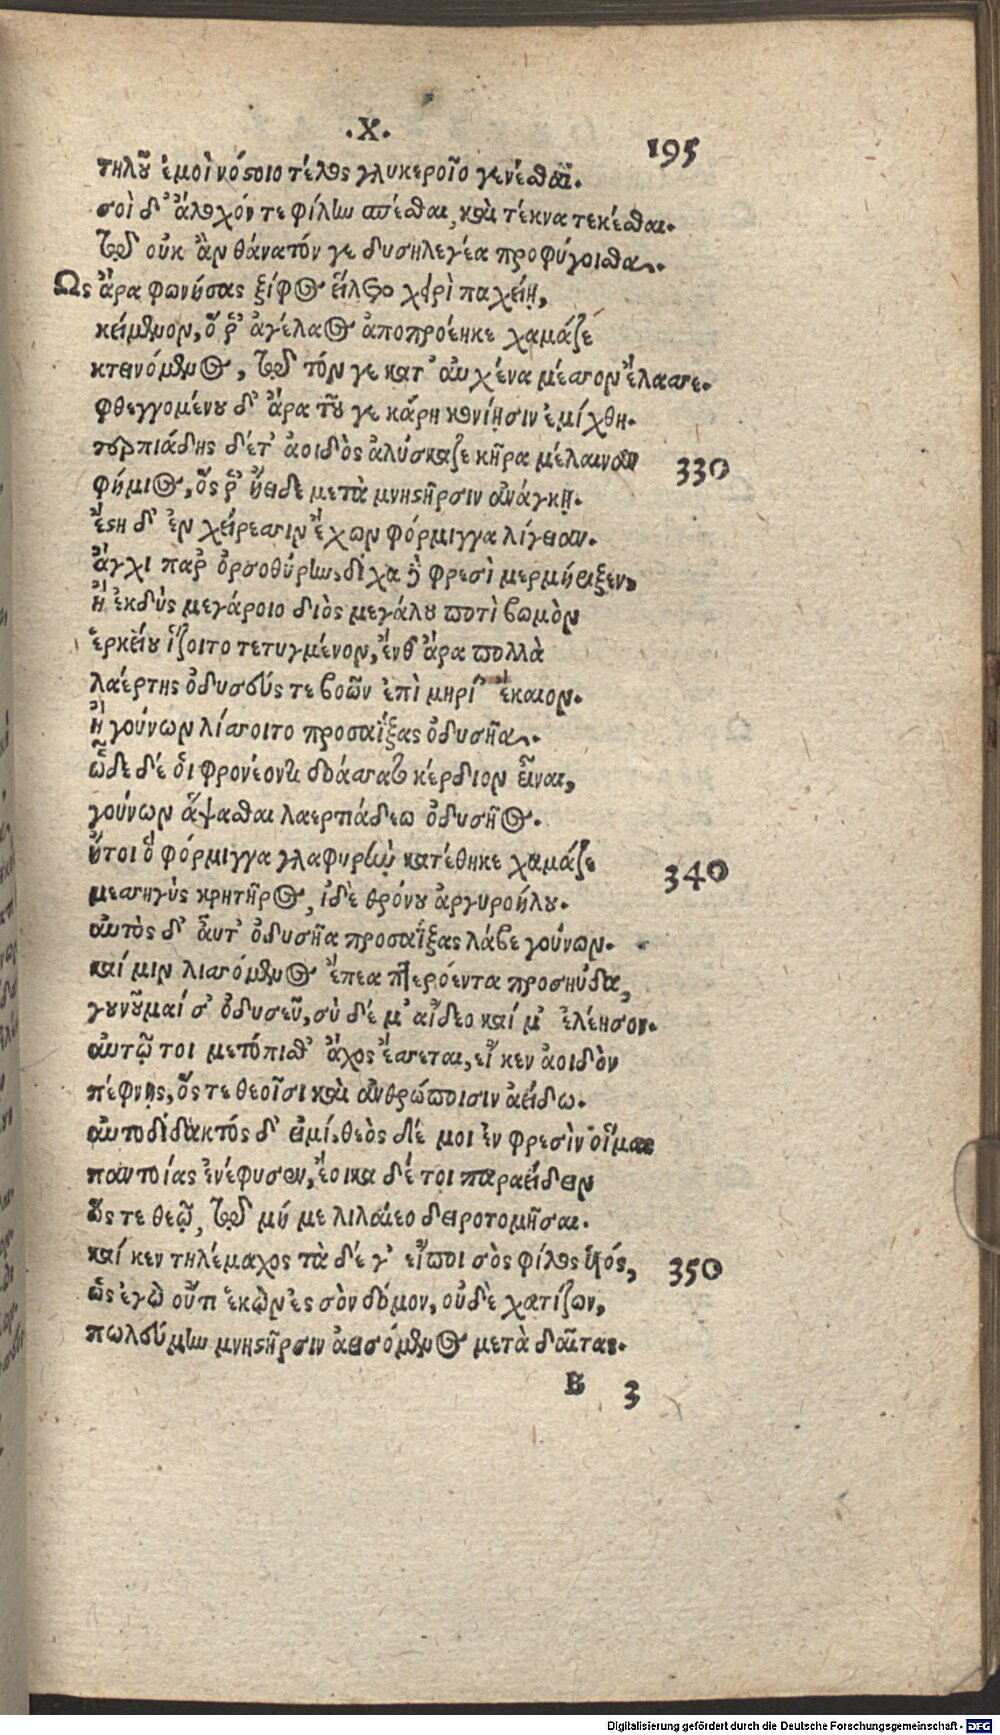 .Χ. 195
τηλοῦ ἐμοὶ νόστοιο τέλος γλυκεροῖο γενέσθαι.
σοὶ δ' ἄλοχόν τε φίλην σπέσθαι, καὶ τέκνα τεκέσθαι.
τῷ οὐκ ἂν θάνατόν γε δυσηλεγέα προφύγοισθα.
Ὣς ἄρα φωνήσας ξίφος εἵλετο χειρὶ παχείῃ,
κείμενον, ὅ ῥ' ἀγέλαος ἀποπροέηκε χαμάζε
κτεινόμενος, τῷ τόν γε κατ' αὐχένα μέσσον ἔλασσε.
φθεγγομένου δ' ἄρα τοῦ γε κάρη κονίῃσιν ἐμίχθη.
τερπιάδης δέτ' ἀοιδὸς ἀλύσκαζε κῆρα μέλαιναν 330
φήμιος, ὅς ῥ' ἤειδε μετὰ μνηστῆρσιν ἀνάγκῃ.
ἔστη δ' ἐν χείρεσσιν ἔχων φόρμιγγα λίγειαν.
ἄγχι παρ' ὀρσοθύρην, δίχα δὲ φρεσὶ μερμήριξεν,
ἢ ἐκδὺς μεγάροιο διὸς μεγάλου ποτὶ βωμὸν
ἑρκείου ἵζοιτο τετυγμένον, ἔνθ' ἄρα πολλὰ
λαέρτης ὀδυσσεύς τε βοῶν ἐπὶ μηρί' ἔκαιον.
ἢ γούνων λίσσοιτο προσαΐξας ὀδυσῆα.
ὧδε δέ οἱ φρονέοντι δοάσσατο κέρδιον εἶναι,
γούνων ἅψασθαι λαερτιάδεω ὀδυσῆος.
ἤτοι ὃ φόρμιγγα γλαφυρὴν κατέθηκε χαμάζε 340
μεσσηγὺς κρητῆρος, ἰδὲ θρόνου ἀργυροήλου.
αὐτὸς δ' αὖτ' ὀδυσῆα προσαΐξας λάβε γούνων.
καί μιν λισσόμενος ἔπεα πτερόεντα προσηύδα,
γουνοῦμαί σ' ὀδυσεῦ, σὺ δέ μ' αἴδεο καί μ' ἐλέησον.
αὐτῷ τοι μετόπισθ' ἄχος ἔσσεται, εἴ κεν ἀοιδὸν
πέφνῃς, ὅς τε θεοῖσι καὶ ἀνθρώποισιν ἀείδω.
αὐτοδίδακτός δ' εἰμί, θεὸς δέ μοι ἐν φρεσὶν οἴμας
παντοίας ἐνέφυσεν, ἔοικα δέ τοι παραείδειν
ὥς τε θεῷ, τῷ μή με λιλαίεο δειροτομῆσαι.
καί κεν τηλέμαχος τὰ δέ γ' εἴποι σὸς φίλος υἱός, 350
ὡς ἐγὼ οὔτι ἑκὼν ἐς σὸν δόμον, οὐδὲ χατίζων,
πωλεύμην μνηστῆρσιν ἀεισόμενος μετὰ δαῖτας.
B 3
Digitalisierung gefördert durch die Deutsche Forschungsgemeinschaft - DFG